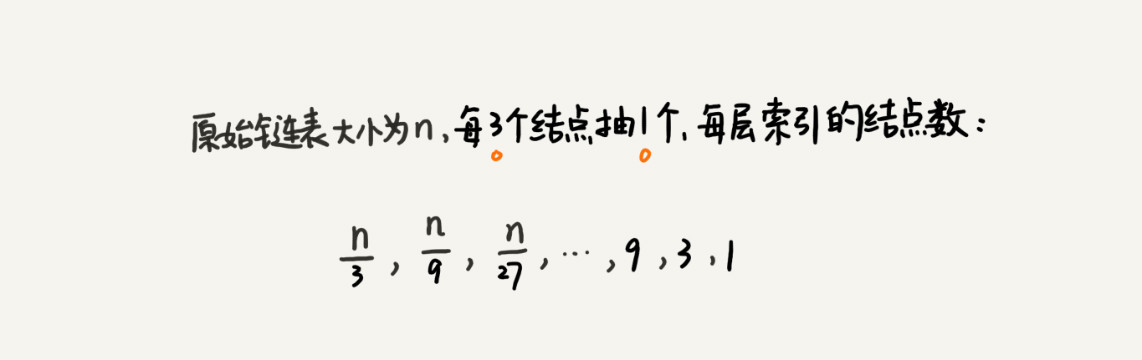 原始链表大小为n,每3个结点抽1个,每层索引的结点数:
n/3, n/9, n/27, ..., 9, 3, 1